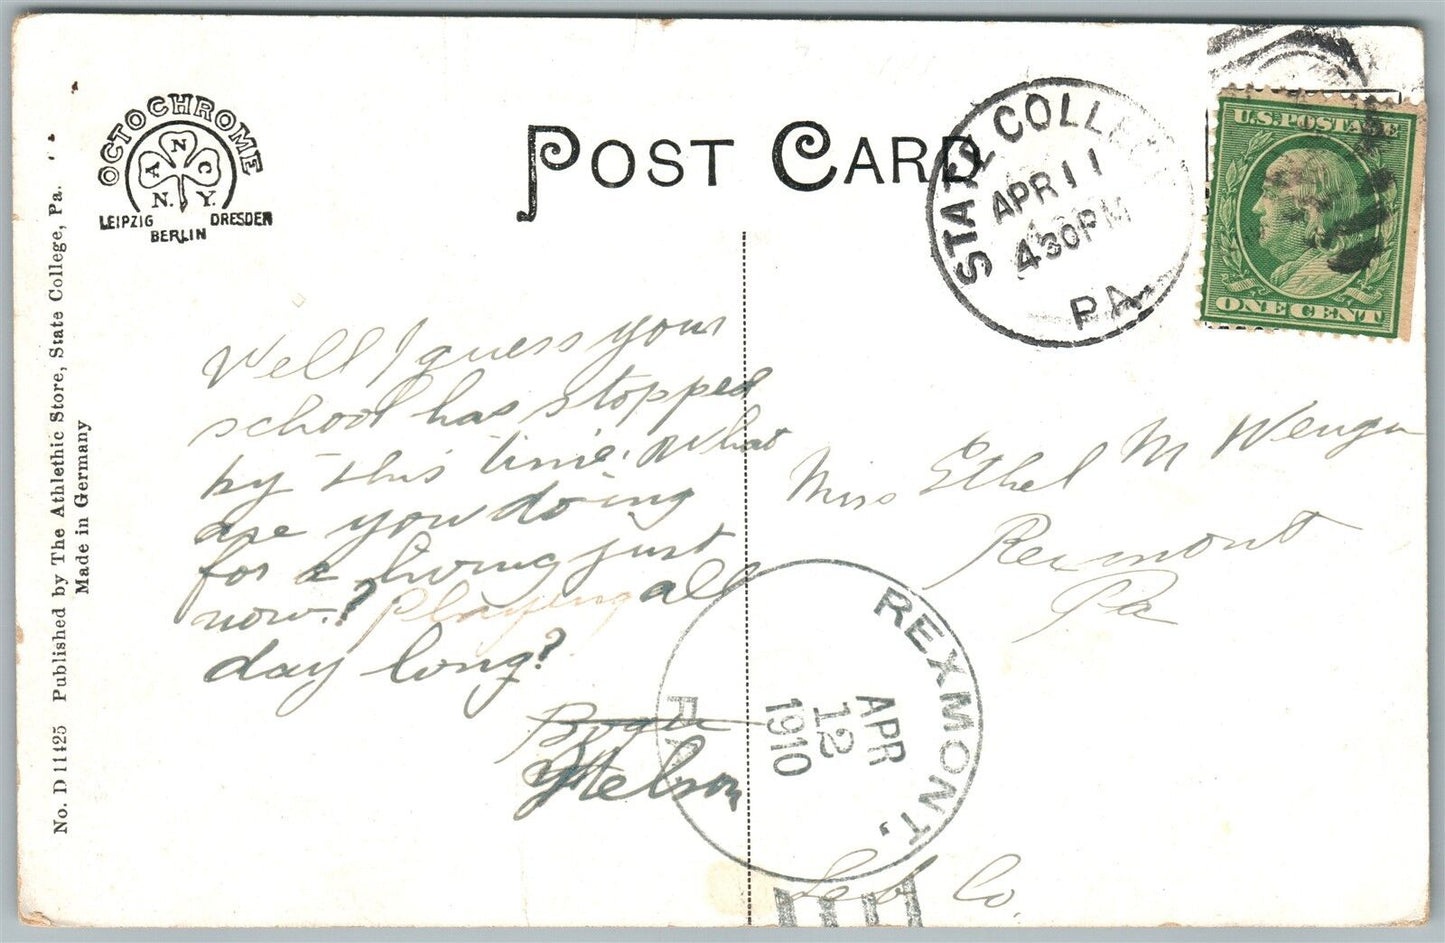 OCTOCHROME
A N C
N. Y.
LEIPZIG DRESDEN
BERLIN
POST CARD
STATE COLLEGE
APR 11
430PM
PA.
U.S. POSTAGE
ONE CENT
No. D 11425 Published by The Athlethic Store, State College, Pa.
Made in Germany
Well I guess your
school has stopped
by this time. What
are you doing
for a living just
now.? Playing all
day long?
Miss Ethel M Wenger
Rexmont
Pa
Leb Co.
REXMONT,
APR
12
1910
PA.